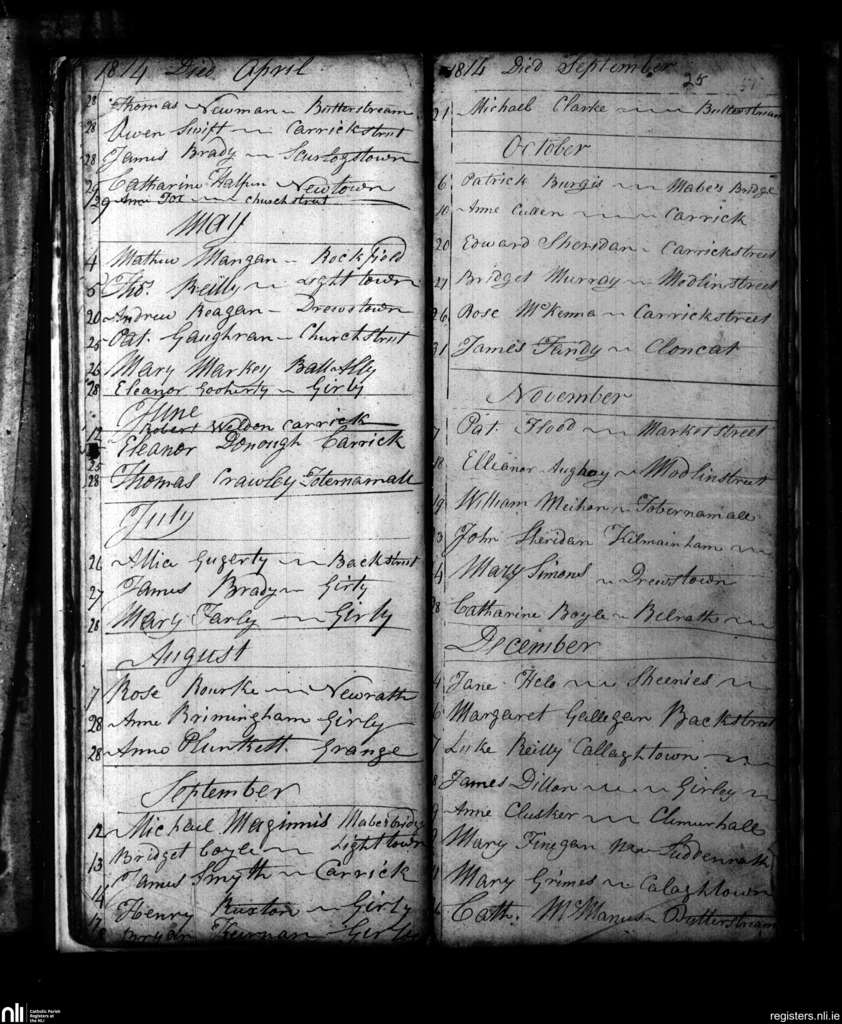 1814 Died April
28 Thomas Newman Butterstream
28 Owen Swift Carrickstrut
28 James Brady Scurlogstown
29 Catharine Halpin Newtown
29 Anne Fox Churchstrut
May
4 Mathew Mangan Rockfield
5 Thos. Reilly Lighttown
20 Andrew Reagan Drewstown
25 Pat. Gaughran Churchstrut
26 Mary Markey Ballathy
28 Eleanor Goherty Girly
June
Robert Weldon Carrick
Eleanor Donough Carrick
25
28 Thomas Crawley Toternamall
July
26 Allice Gugerty Backstrut
27 James Brady Girly
28 Mary Farly Girly
August
7 Rose Rourke Newrath
28 Anne Brimingham Girly
28 Anne Plunkett Grange
September
12 Michael Maginnis Mabesbridge
13 Bridget Coyle Lighttown
14 James Smyth Carrick
Henry Ruxton Girly
Bryan Keirnan Girly
1814 Died September
25
21 Michael Clarke Butterstream
October
6 Patrick Burgis Mabe's Bridge
10 Anne Cullen Carrick
20 Edward Sheridan Carrickstreet
Bridget Murray Modlinstreet
26 Rose McKenna Carrickstreet
31 James Tandy Cloncat
November
7 Pat. Flood Market street
18 Elleanor Aughoy Modlinstreet
19 William Meihan Tobernamale
3 John Sheridan Kilmainham
4 Mary Simons Drewstown
8 Catharine Boyle Belrath
December
4 Jane Helo Sheenies
6 Margaret Gallegan Backstreet
7 Luke Reilly Callaghtown
8 James Dillon Girley
9 Anne Clusker Climurhall
9 Mary Finegan New Suddenrath
11 Mary Grimes Calaghtown
16 Cath. McManus Butterstream
nli Catholic Parish
Registers at
the NLI
registers.nli.ie